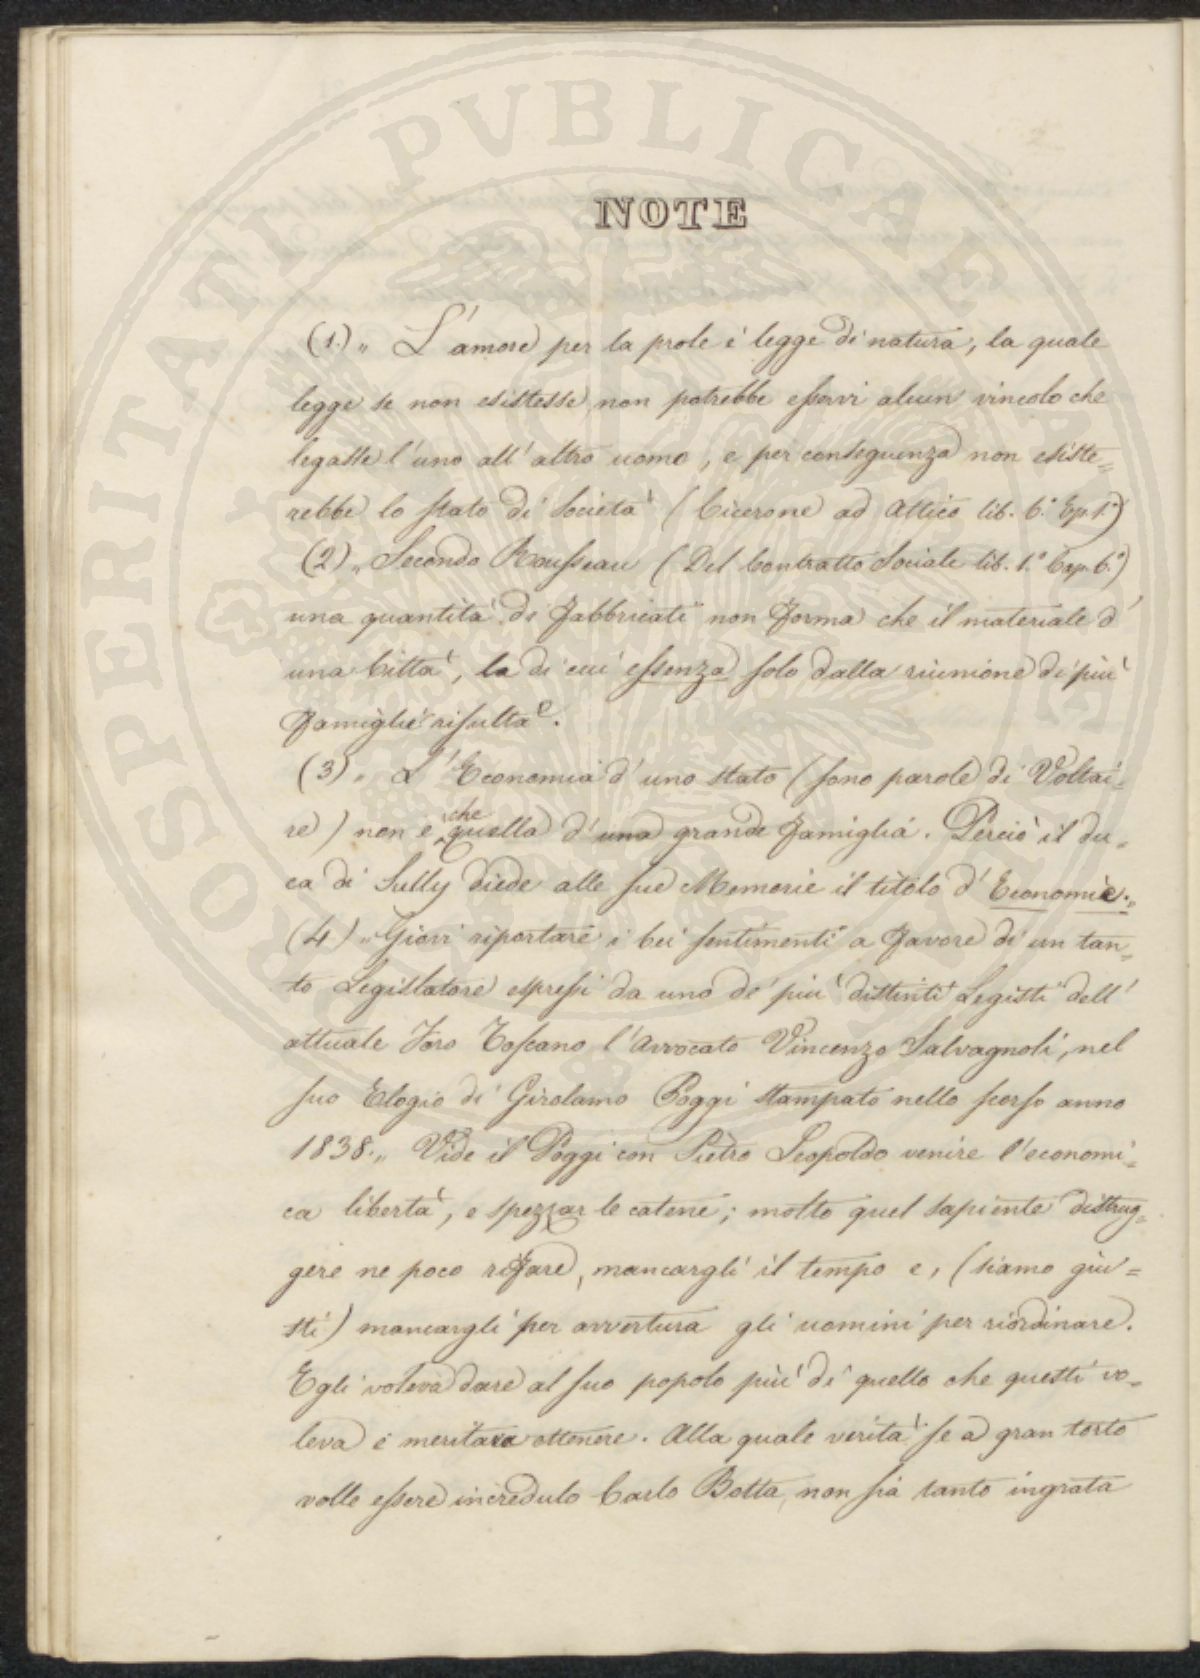 PROSPERITATI PVBLICAE AVGENDAE
NOTE
(1.) „ L'amore per la prole è legge di natura, la quale
legge se non esistesse non potrebbe esservi alcun vincolo che
legasse l'uno all'altro uomo, e per conseguenza non esiste=
rebbe lo stato di Società (Cicerone ad Attico lib. 6.° Ep. 1.ª)
(2) „ Secondo Rousseau (Del Contratto Sociale lib. 1.° Cap. 6.°)
una quantità di fabbricati non forma che il materiale d'
una Città, la di cui essenza solo dalla riunione di più
famiglie risulta.
(3) „ L'Economia d'uno stato (sono parole di Voltai=
re) non è che quella d'una grande famiglia. Perciò il du=
ca di Sully diede alle sue Memorie il titolo d'Economie.„
(4) „ Giovi riportare i bei sentimenti a favore di un tan=
to Legislatore espressi da uno de' più distinti Legisti dell'
attuale Foro Toscano l'Avvocato Vincenzo Salvagnoli, nel
suo Elogio di Girolamo Poggi stampato nello scorso anno
1838. „ Vide il Poggi con Pietro Leopoldo venire l'economi=
ca libertà, e spezzar le catene; molto quel sapiente distrug=
gere ne poco rifare, mancargli il tempo e, (siamo giu=
sti) mancargli per avventura gli uomini per riordinare.
Egli voleva dare al suo popolo più di quello che questi vo=
leva e meritava ottenere. Alla quale verità se a gran torto
volle essere incredulo Carlo Botta, non sia tanto ingrata